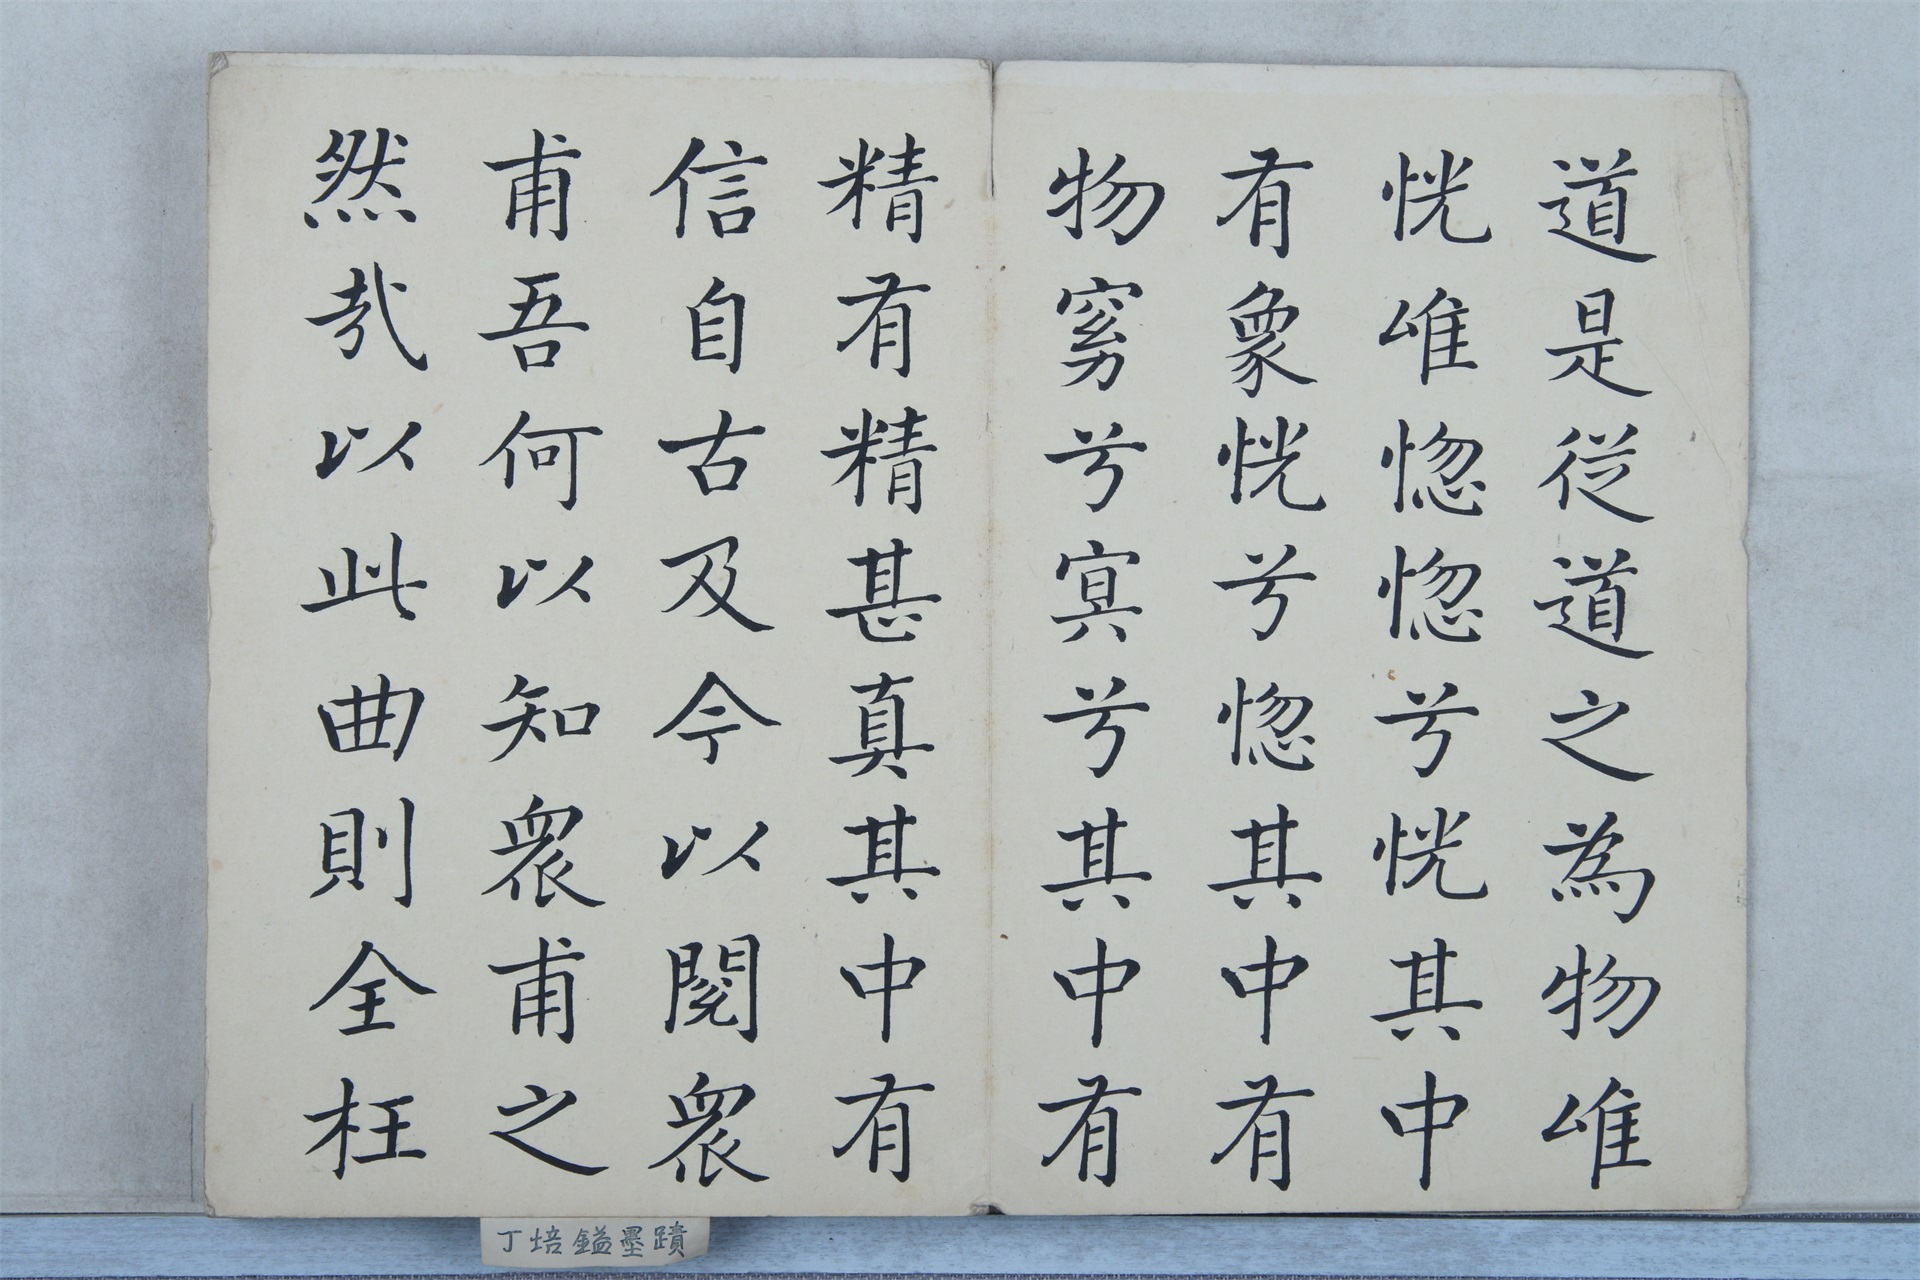 道是従道之為物唯
恍唯惚惚兮恍其中
有象恍兮惚其中有
物窈兮冥兮其中有
精有精甚真其中有
信自古及今以閱衆
甫吾何以知衆甫之
然哉以此曲則全枉
丁培鎰墨蹟